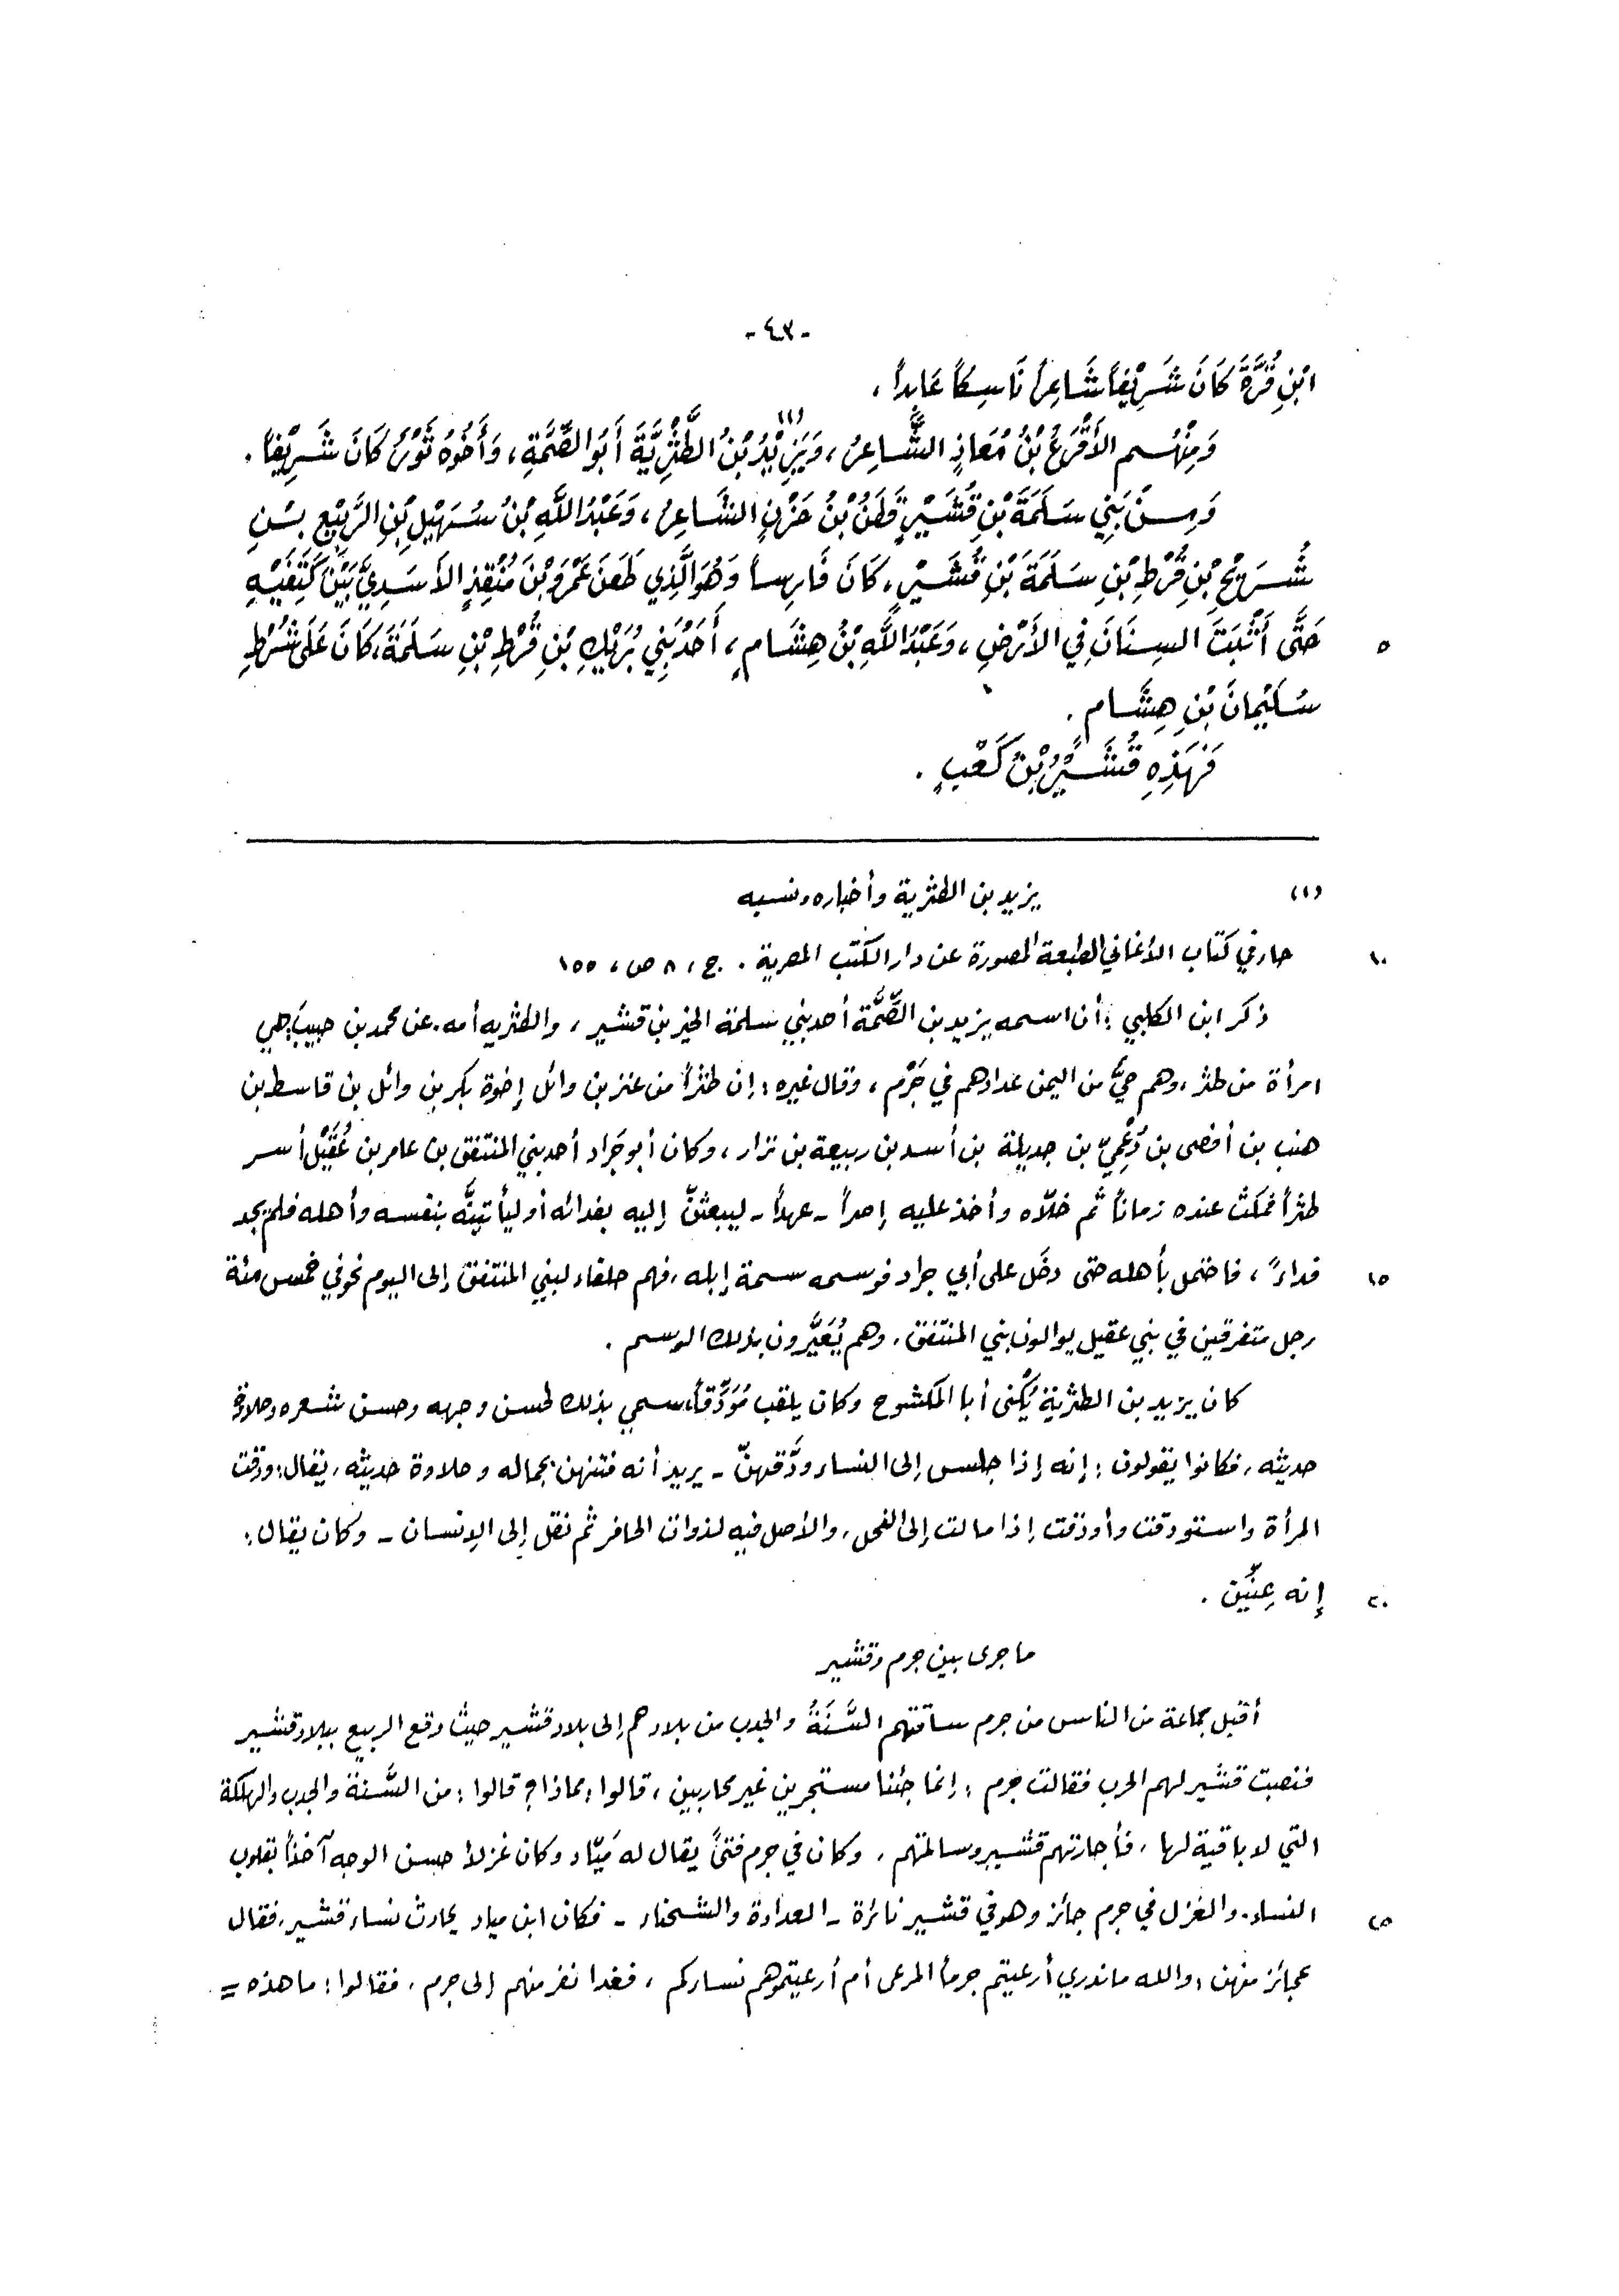 -٤٣-
ابْنِ قُرَّةَ كَانَ شَرِيْفاً شَاعِراً نَاسِكاً عَابِداً،
وَمِنْهُم الأَقْرَعُ بْنُ مُعَاذٍ الشَّاعِرُ، وَيَزِيْدُ بْنُ الطَّثْرِيَّةِ (١) أَبُو الصِّمَّةِ، وَأَخُوهُ ثَوْرٌ كَانَ شَرِيْفاً.
وَمِنْ بَنِي سَلَمَةَ بْنِ قُشَيْرٍ قَطَنُ بْنُ حَزْنٍ الشَّاعِرُ، وَعَبْدُ اللَّهِ بْنُ سُهَيْلِ بْنِ الرَّبِيْعِ بْنِ
شُرَيْحِ بْنِ قُرْطِ بْنِ سَلَمَةَ بْنِ قُشَيْرٍ، كَانَ فَارِساً وَهُوَ الَّذِي طَعَنَ عَمْرَو بْنَ مُنْقِذٍ الأَسَدِيَّ بَيْنَ كَتِفَيْهِ
٥ حَتَّى أَثْبَتَ السِنَانَ فِي الأَرْضِ، وَعَبْدُ اللَّهِ بْنُ هِشَامٍ، أَحَدُ بَنِي بُرَيْكِ بْنِ قُرْطِ بْنِ سَلَمَةَ، كَانَ عَلَى شُرَطِ
سُلَيْمانَ بْنِ هِشَامٍ.
فَهَذِهِ قُشَيْرُ بْنُ كَعْبٍ.
(١) يزيد بن الطثرية وأخباره ونسبه
١٠ جاء في كتاب الأغاني الطبعة المصورة عن دار الكتب المصرية. ج، ٨ ص، ١٥٥
ذكر ابن الكلبي: أن اسمه يزيد بن الصِّمَّة أحد بني سلمة الخير بن قشير، والطثريه أمه. عن محمد بن حبيب: هي
امرأة من طثر، وهم حيٌّ من اليمن عدادهم في جَرْم، وقال غيره: إن طثراً من عنز بن وائل إخوة بكر بن وائل بن قاسط بن
هنب بن أفصى بن دُعْمِيّ بن جديلة بن أسد بن ربيعة بن نزار، وكان أبو جَراد أحد بني المنتفق بن عامر بن عُقَيْل أسر
طثراً فمكث عنده زماناً ثم خلّاه وأخذ عليه إصراً - عهداً - ليبعثنّ إليه بفدائه أو ليأتينَّه بنفسه وأهله فلم يجد
١٥ فداءً، فاحتمل بأهله حتى دخَل على أبي جراد فوسمه سمة إبله، فهم حلفاء لبني المنتفق إلى اليوم نحو في خمس مئة
رجل متفرقين في بني عقيل يوالون بني المنتفق، وهم يُعَيَّرون بذلك الوسم.
كان يزيد بن الطثرية يُكْنى أبا المكشوح وكان يلقب مُوَدِّقاً، سمي بذلك لحسن وجهه وحسن شعره وحلاوة
حديثه، فكانوا يقولون: إنه إذا جلس إلى النساء ودَّقهنّ - يريد أنه فتنهن بجماله وحلاوة حديثه، يقال: ودقت
المرأة واستودقت وأودقت إذا مالت إلى الفحل، والأصل فيه لذوات الحافر ثم نقل إلى الإنسان - وكان يقال:
٢٠ إنه عِنِّين.
ما جرى بين جرم وقشير
أقبل جماعة من الناس من جرم ساقتهم السَّنَةُ والجدب من بلادهم إلى بلاد قشير حيث وقع الربيع ببلاد قشير
فنصبت قشير لهم الحرب فقالت جرم: إنما جئنا مستجيرين غير محاربين، قالوا: مماذا؟ قالوا: من السَّنة والجدب والهلكة
التي لا باقية لها، فأجارتهم قشير وسالمتهم، وكان في جرم فتىً يقال له مَيّاد وكان غزلا حسن الوجه آخذاً بقلوب
٢٥ النساء. والغزل في جرم جائز وهو في قشير نائرة - العداوة والشحناء - فكان ابن مياد يحادث نساء قشير، فقال
عجائز منهن: والله ما ندري أرعيتم جرماً المرعى أم أرعيتموهم نساءكم، فغدا نفر منهم إلى جرم، فقالوا: ما هذه =